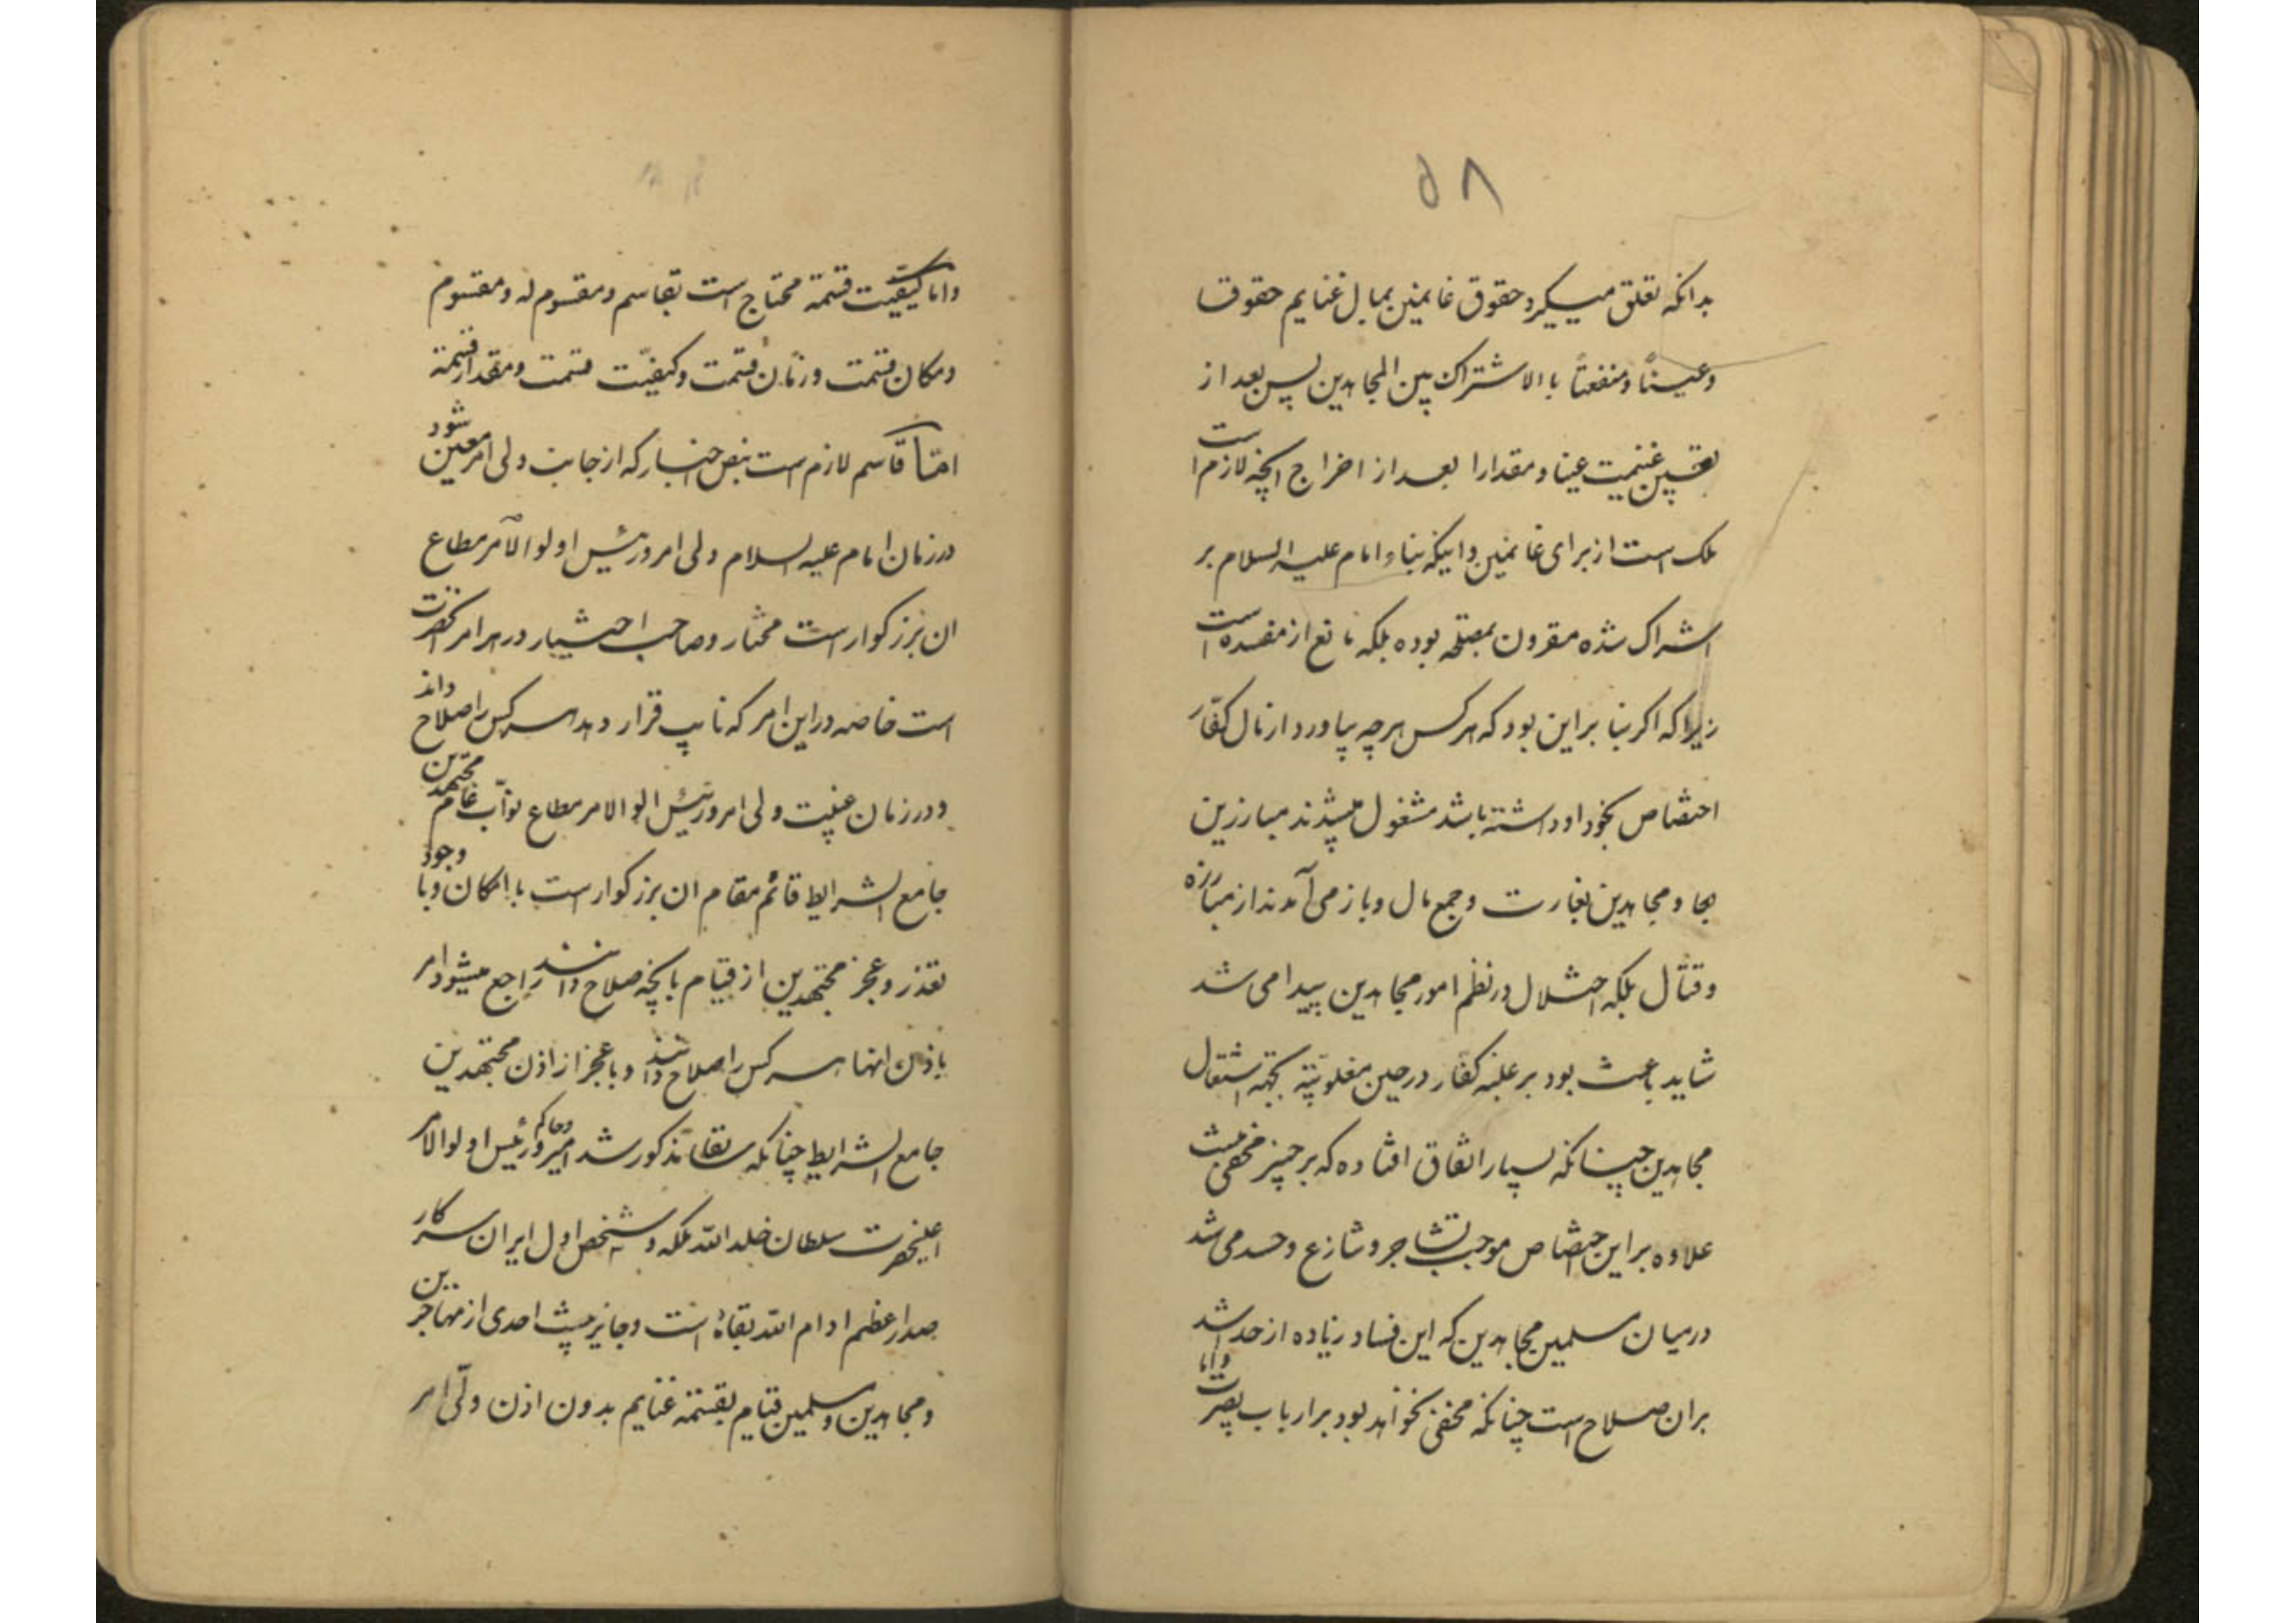 ۵۸
بدانکه تعلق میگیرد حقوق غانمین بمال غنایم حقوقا
وعیناً ومنفعتاً با الاشتراک بین المجاهدین پس بعد از
تعیین غنیمت عینا ومقدارا بعد از اخراج انچه لازم است
ملک است از برای غانمین واینکه بناء امام علیه السلام بر
اشتراک شده مقرون بمصلحه بوده بلکه مانع از مفسده است
زیرا که اکر بنا براین بود که هر کس هر چه بیاورد از مال کفار
اختصاص بخود او داشته باشد مشغول میشدند مبارزین
بجا ومجاهدین بغارت وجمع مال وباز می آمدند از مبارزه
وقتال بلکه اختلال در نظم امور مجاهدین پیدا می شد
شاید باعث بود بر غلبه کفار در حین مغلوبیّته بجهة اشتغال
مجاهدین چنانکه بسیار اتفاق افتاده که بر خبیر مخفی نیست
علاوه براین اختصاص موجب تشاجر وتنازع وحسد می شد
درمیان مسلمین مجاهدین که این فساد زیاده از حد اشد
بران صلاح است چنانکه مخفی نخواهد بود بر ارباب بصیرت واما
واما کیفیّت قسمة محتاج است بقاسم ومقسوم له ومقسوم
ومکان قسمت وزمان قسمت وکیفیّت قسمت ومقدار قسمة
امّا قاسم لازم است بنص اخبار که از جانب ولی امر معین شود
در زمان امام علیه السلام ولی امر ورئیس اولو الامر مطاع
ان بزرکوار است مختار وصاحب اختیار در هر امر انحضرت
است خاصه در این امر که نایب قرار دهد هر کس را صلاح داند
ودر زمان غیبت ولی امر ورئیس الو الامر مطاع نوّاب عام مجتهدین
جامع الشرایط قائم مقام ان بزرکوار است با امکان وبا وجود
تعذر وعجز مجتهدین از قیام بانچه صلاح دانند راجع میشود امر
باذن انها هر کس را صلاح دانند وبا عجز از اذن مجتهدین
جامع الشرایط چنانکه سابقا مذکور شد امیر وحاکم ورئیس اولو الامر
اعلیحضرت سلطان خلد الله ملکه وشخص اول ایران سرکار
صدر اعظم ادام الله بقاه است وجایز نیست احدی از مهاجرین
ومجاهدین ومسلمین قیام بقسمة غنایم بدون اذن ولّی امر